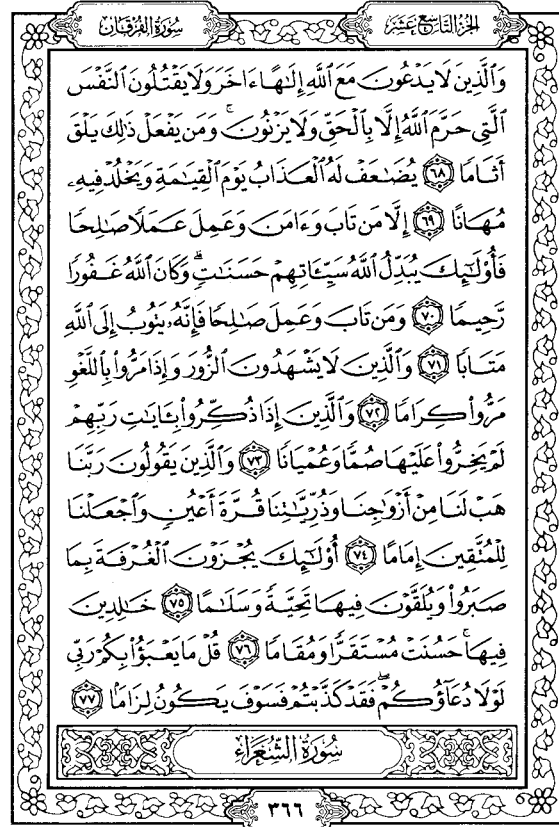 سُورَةُ الفُرْقَانِ
الجُزْءُ التَّاسِعَ عَشَرَ
وَٱلَّذِينَ لَا يَدْعُونَ مَعَ ٱللَّهِ إِلَٰهًا ءَاخَرَ وَلَا يَقْتُلُونَ ٱلنَّفْسَ
ٱلَّتِي حَرَّمَ ٱللَّهُ إِلَّا بِٱلْحَقِّ وَلَا يَزْنُونَ ۚ وَمَن يَفْعَلْ ذَٰلِكَ يَلْقَ
أَثَامًا ٦٨ يُضَٰعَفْ لَهُ ٱلْعَذَابُ يَوْمَ ٱلْقِيَٰمَةِ وَيَخْلُدْ فِيهِۦ
مُهَانًا ٦٩ إِلَّا مَن تَابَ وَءَامَنَ وَعَمِلَ عَمَلًا صَٰلِحًا
فَأُو۟لَٰٓئِكَ يُبَدِّلُ ٱللَّهُ سَيِّـَٔاتِهِمْ حَسَنَٰتٍ ۗ وَكَانَ ٱللَّهُ غَفُورًا
رَّحِيمًا ٧٠ وَمَن تَابَ وَعَمِلَ صَٰلِحًا فَإِنَّهُۥ يَتُوبُ إِلَى ٱللَّهِ
مَتَابًا ٧١ وَٱلَّذِينَ لَا يَشْهَدُونَ ٱلزُّورَ وَإِذَا مَرُّوا۟ بِٱللَّغْوِ
مَرُّوا۟ كِرَامًا ٧٢ وَٱلَّذِينَ إِذَا ذُكِّرُوا۟ بِـَٔايَٰتِ رَبِّهِمْ
لَمْ يَخِرُّوا۟ عَلَيْهَا صُمًّا وَعُمْيَانًا ٧٣ وَٱلَّذِينَ يَقُولُونَ رَبَّنَا
هَبْ لَنَا مِنْ أَزْوَٰجِنَا وَذُرِّيَّٰتِنَا قُرَّةَ أَعْيُنٍ وَٱجْعَلْنَا
لِلْمُتَّقِينَ إِمَامًا ٧٤ أُو۟لَٰٓئِكَ يُجْزَوْنَ ٱلْغُرْفَةَ بِمَا
صَبَرُوا۟ وَيُلَقَّوْنَ فِيهَا تَحِيَّةً وَسَلَٰمًا ٧٥ خَٰلِدِينَ
فِيهَا ۚ حَسُنَتْ مُسْتَقَرًّا وَمُقَامًا ٧٦ قُلْ مَا يَعْبَؤُا۟ بِكُمْ رَبِّي
لَوْلَا دُعَآؤُكُمْ ۖ فَقَدْ كَذَّبْتُمْ فَسَوْفَ يَكُونُ لِزَامًۢا ٧٧
سُورَةُ الشُّعَرَاءِ
٣٦٦